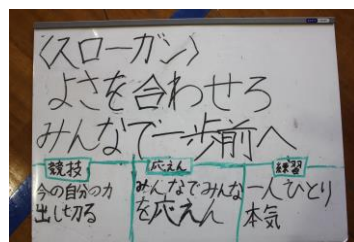 〈スローガン〉
よさを合わせろ
みんなで一歩前へ
競技
今の自分の力
出し切る
応えん
みんなでみんな
を応えん
練習
一人ひとり
本気